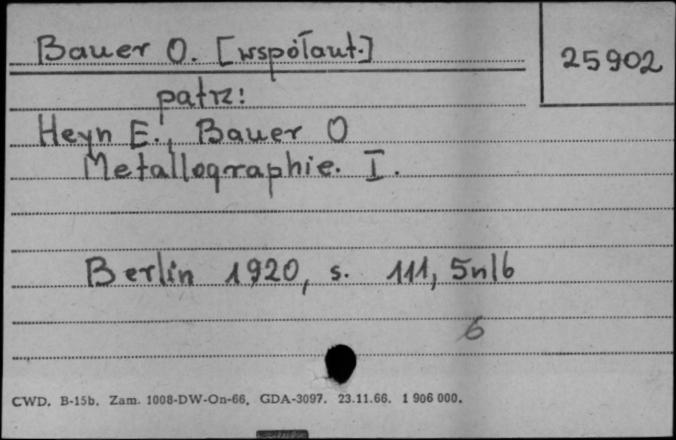 Bauer O. [współaut.]
25902
patrz:
Heyn E., Bauer O
Metallographie. I.
Berlin 1920, s. 111, 5nlb
6
CWD. B-15b. Zam. 1008-DW-On-66. GDA-3097. 23.11.66. 1 906 000.